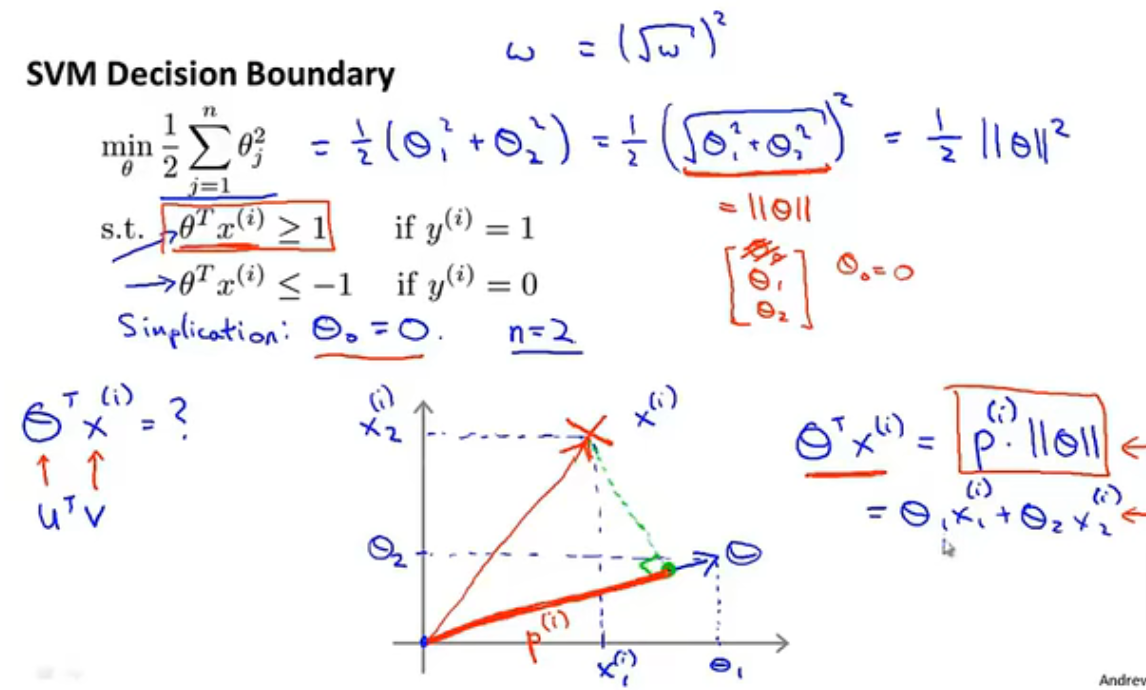 ω = (√ω)²
SVM Decision Boundary
min_θ 1/2 ∑_{j=1}^{n} θ_j² = 1/2 (Θ₁² + Θ₂²) = 1/2 (√(Θ₁² + Θ₂²))² = 1/2 ||Θ||²
= ||Θ||
s.t. θᵀx⁽ⁱ⁾ ≥ 1 if y⁽ⁱ⁾ = 1
→ θᵀx⁽ⁱ⁾ ≤ −1 if y⁽ⁱ⁾ = 0
[Θ₁ Θ₂] Θ₀ = 0
Simplication: Θ₀ = 0. n=2
Θᵀx⁽ⁱ⁾ = ?
↑ ↑
uᵀv
x₂⁽ⁱ⁾
x⁽ⁱ⁾
Θ₂
Θ
p⁽ⁱ⁾
x₁⁽ⁱ⁾
Θ₁
Θᵀx⁽ⁱ⁾ = p⁽ⁱ⁾ · ||Θ|| ←
= Θ₁x₁⁽ⁱ⁾ + Θ₂x₂⁽ⁱ⁾ ←
Andrew